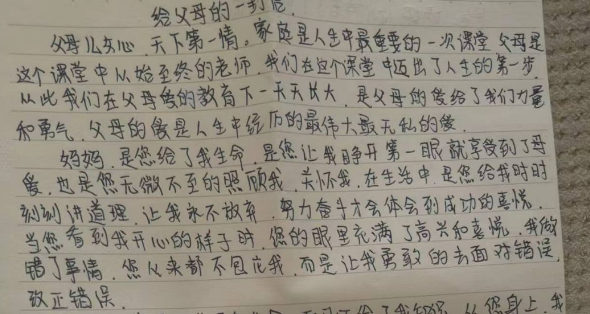 给父母的一封信
父母儿女心，天下第一情。家庭是人生中最重要的一次课堂，父母是
这个课堂中从始至终的老师，我们在这个课堂中迈出了人生的第一步，
从此我们在父母的教育下一天天长大，是父母的爱给了我们力量
和勇气，父母的爱是人生中经历的最伟大最无私的爱。
妈妈，是您给了我生命，是您让我睁开第一眼就享受到了母
爱，也是您无微不至的照顾我，关怀我，在生活中，是您给我时时
刻刻讲道理，让我永不放弃，努力奋斗才会体会到成功的喜悦，
当您看到我开心的样子时，您的眼里充满了高兴和喜悦，我做
错了事情，您从来都不包庇我，而是让我勇敢的去面对错误，
改正错误。
给了我 从您身上，我